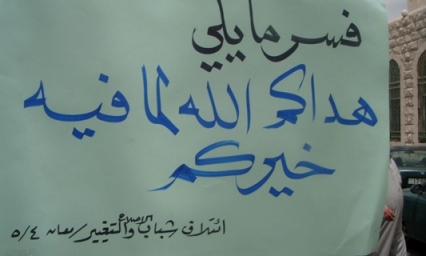 فسر ما يلي
هداكم الله لما فيه
خيركم
ائتلاف شباب الإصلاح والتغيير / معان ٥/٤